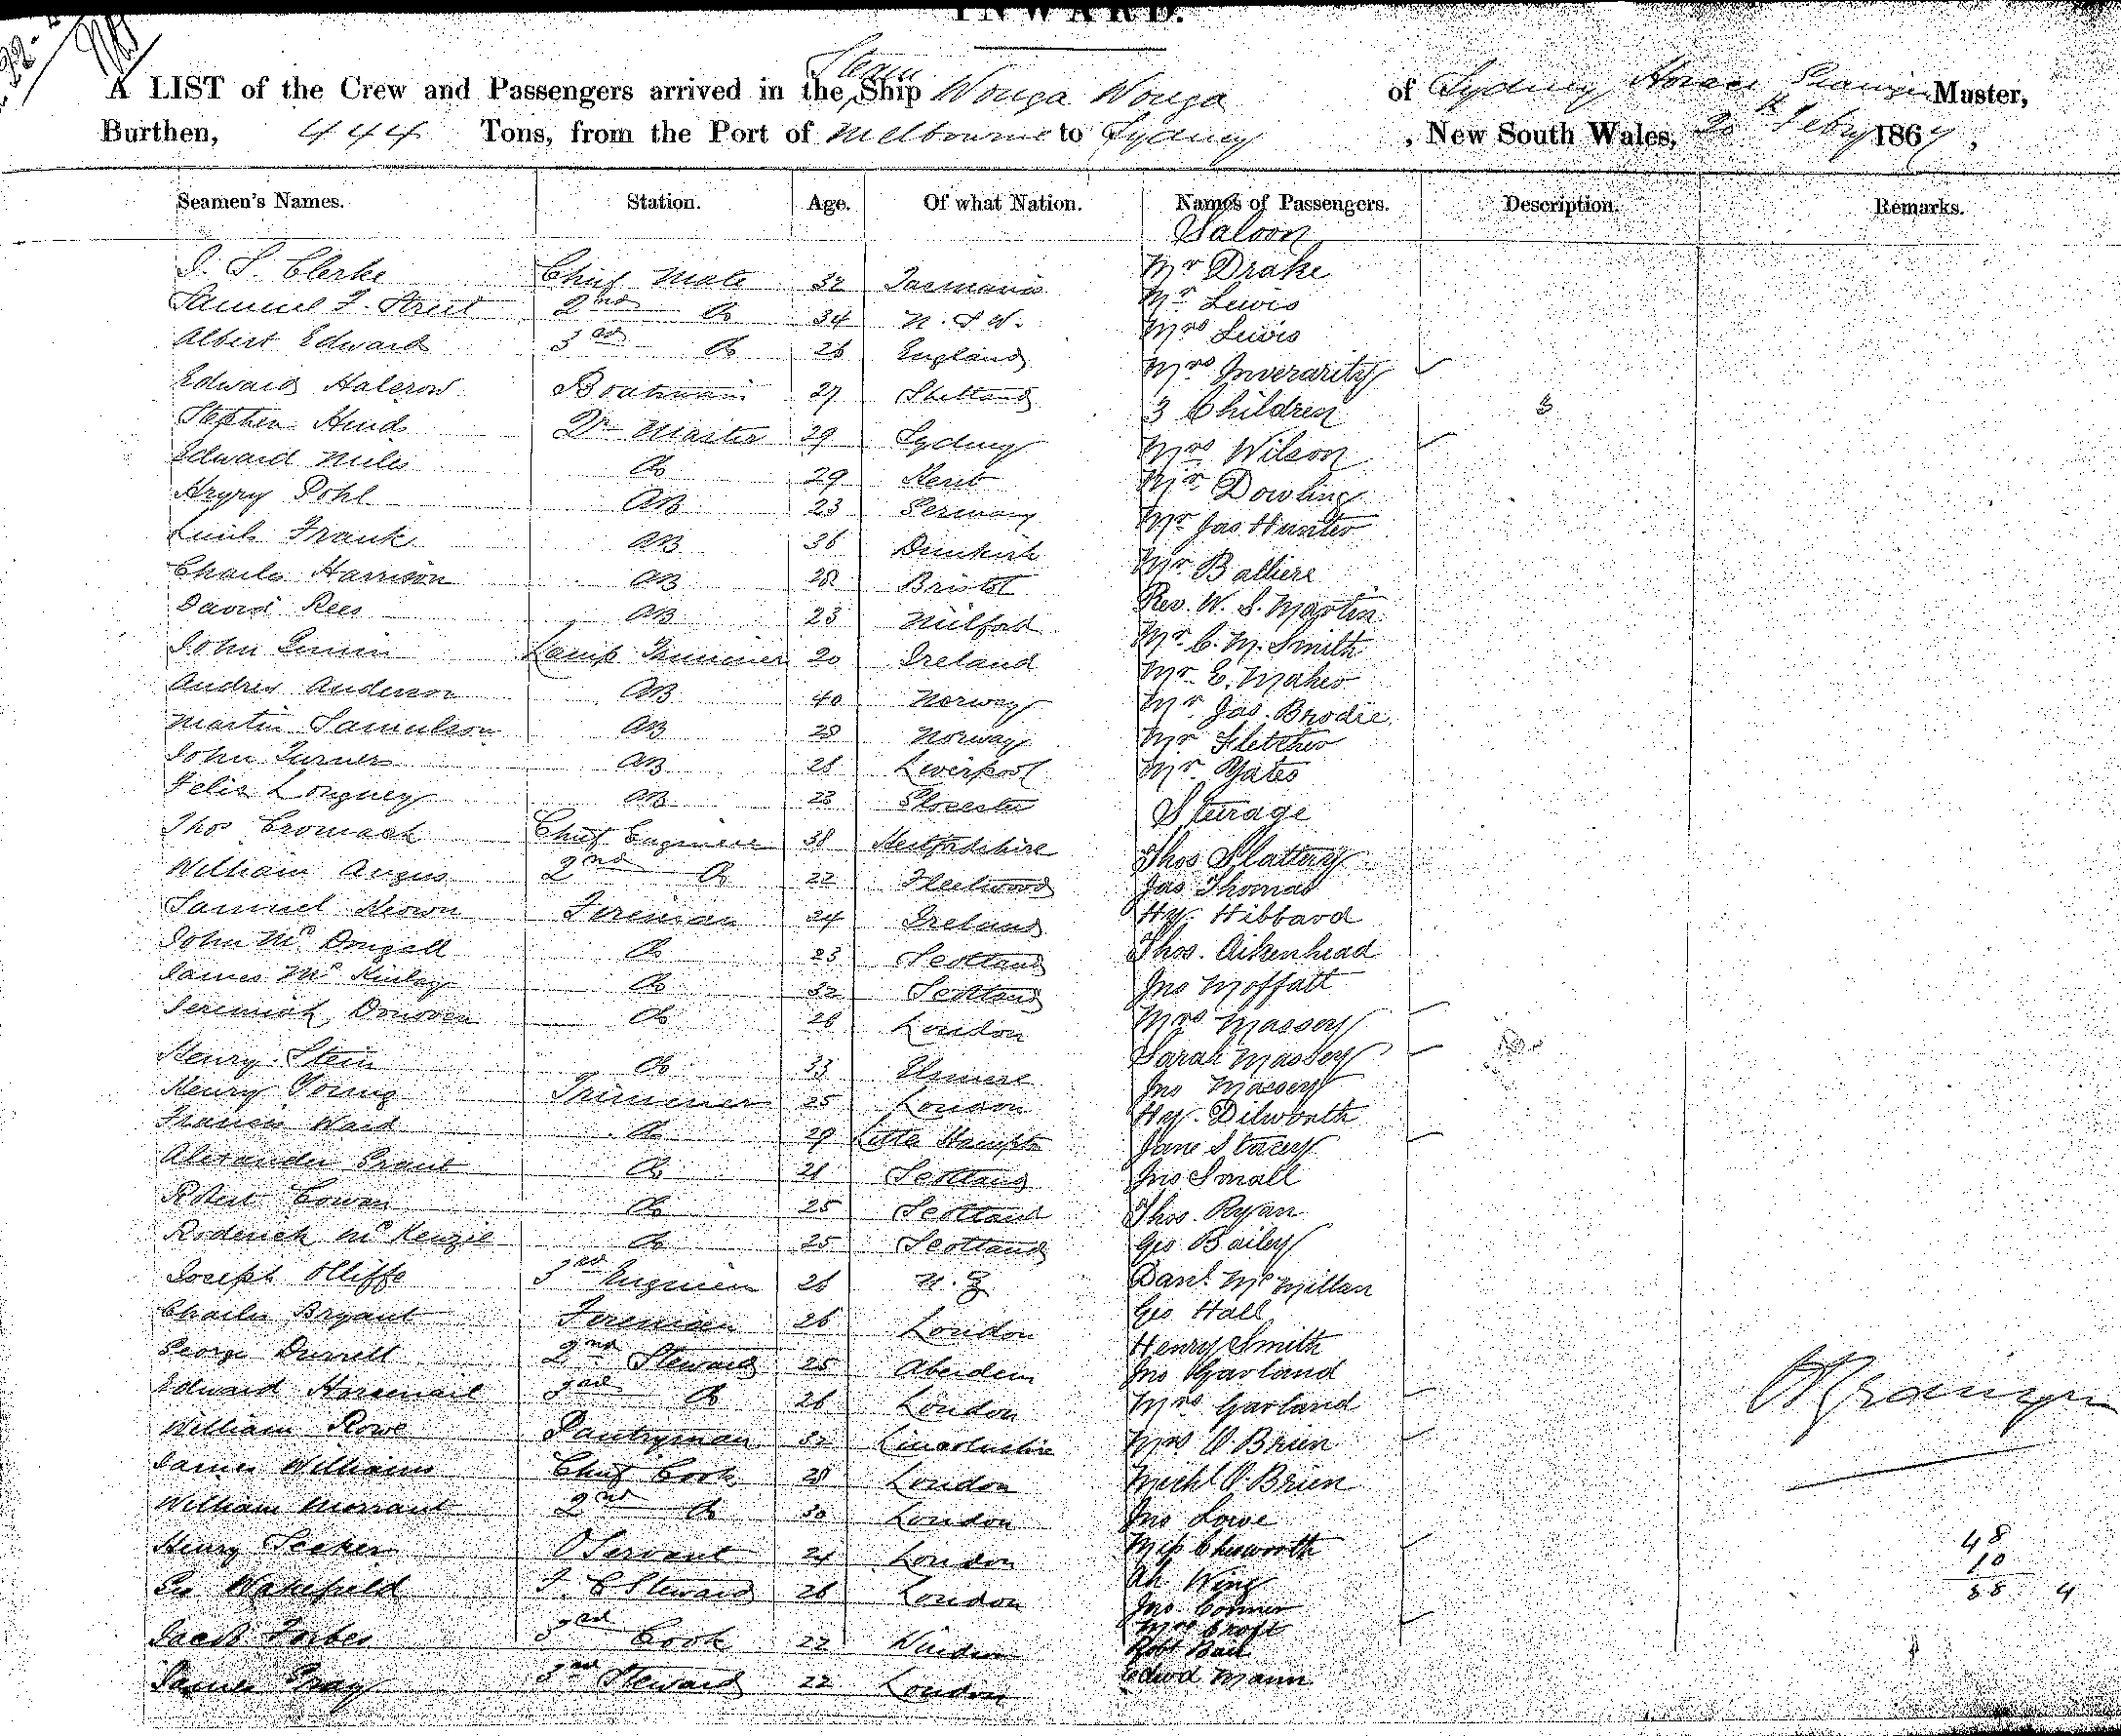 INWARD.
A LIST of the Crew and Passengers arrived in the Steam Ship Wonga Wonga of Sydney Master,
Burthen, 444 Tons, from the Port of Melbourne to Sydney, New South Wales, 20th Febry 1867,
Seamen's Names. Station. Age. Of what Nation. Names of Passengers. Description. Remarks.
Saloon
J. S. Clerke Chief Mate 32 Tasmania Mr Drake
Samuel F. Street 2nd Do 34 N. S. W. Mr Lewis
Albert Edward 3rd Do 26 England Mrs Lewis
Edward Halcrow Boatswain 27 Shetland Mrs Inverarity
Stephen Hind Qr Master 29 Sydney 3 Children 3
Edward Miles Do 29 Kent Mrs Wilson
Henry Pohl AB 23 Germany Mr Dowling
Frank AB 36 Dunkirk Mr Jas Hunter
Charles Harrison AB 28 Bristol Mr Balliere
David Rees AB 23 Milford Rev. W. S. Martin
John Lamp Trimmer 20 Ireland Mr C. M. Smith
Andrew Anderson AB 40 Norway Mr E. Maher
Martin Samulson AB 28 Norway Mr Jas. Brodie
John Turner AB 28 Liverpool Mr Fletcher
Felix Longney AB 23 Glocester Mr Yates
Steerage
Thos Cromack Chief Engineer 38 Hertfordshire Thos Slattery
William Angus 2nd Do 22 Fleetwood Jas Thomas
Samuel Keown Fireman 24 Ireland Hy. Hibbard
John McDougall Do 23 Scotland Thos. Aikenhead
James McKinlay Do 32 Scotland Jno Moffatt
Jeremiah Donoven Do 26 London Mrs Massey
Henry Stein Do 33 Sarah Massey
Jno Massey
Henry Young Trimmer 25 London Hy. Dilworth
Francis Ward Do 29 Little Hampton Jane Stacey
Alexander Grant Do 21 Scotland Jno Small
Robert Cowan Do 25 Scotland Thos. Ryan
Roderick McKenzie Do 25 Scotland Geo Bailey
Joseph Olliffe 3rd Engineer 26 N. Z. Danl. McMillan
Charles Bryant Fireman 26 London Geo Hall
George Durrell 2nd Steward 25 Aberdeen Henry Smith
Jno Garland
Edward Horsenail 3rd Do 26 London Mrs Garland
William Rowe Pantryman 32 Lincolnshire Mrs O.Brien
James Williams Chief Cook 28 London Michl O.Brien
William Morrant 2nd Do 30 London Jno Lowe
Henry Seeker O Servant 24 London Miss Chisworth 48
Geo Wakefield F. C Steward 26 London Ah Wing 10
Jno. Connor 58 4
Jacob Forbes 3rd Cook 22 Windsor Mrs Croft
Robt Bail
James Gray 3rd Steward 22 London Edwd Mann